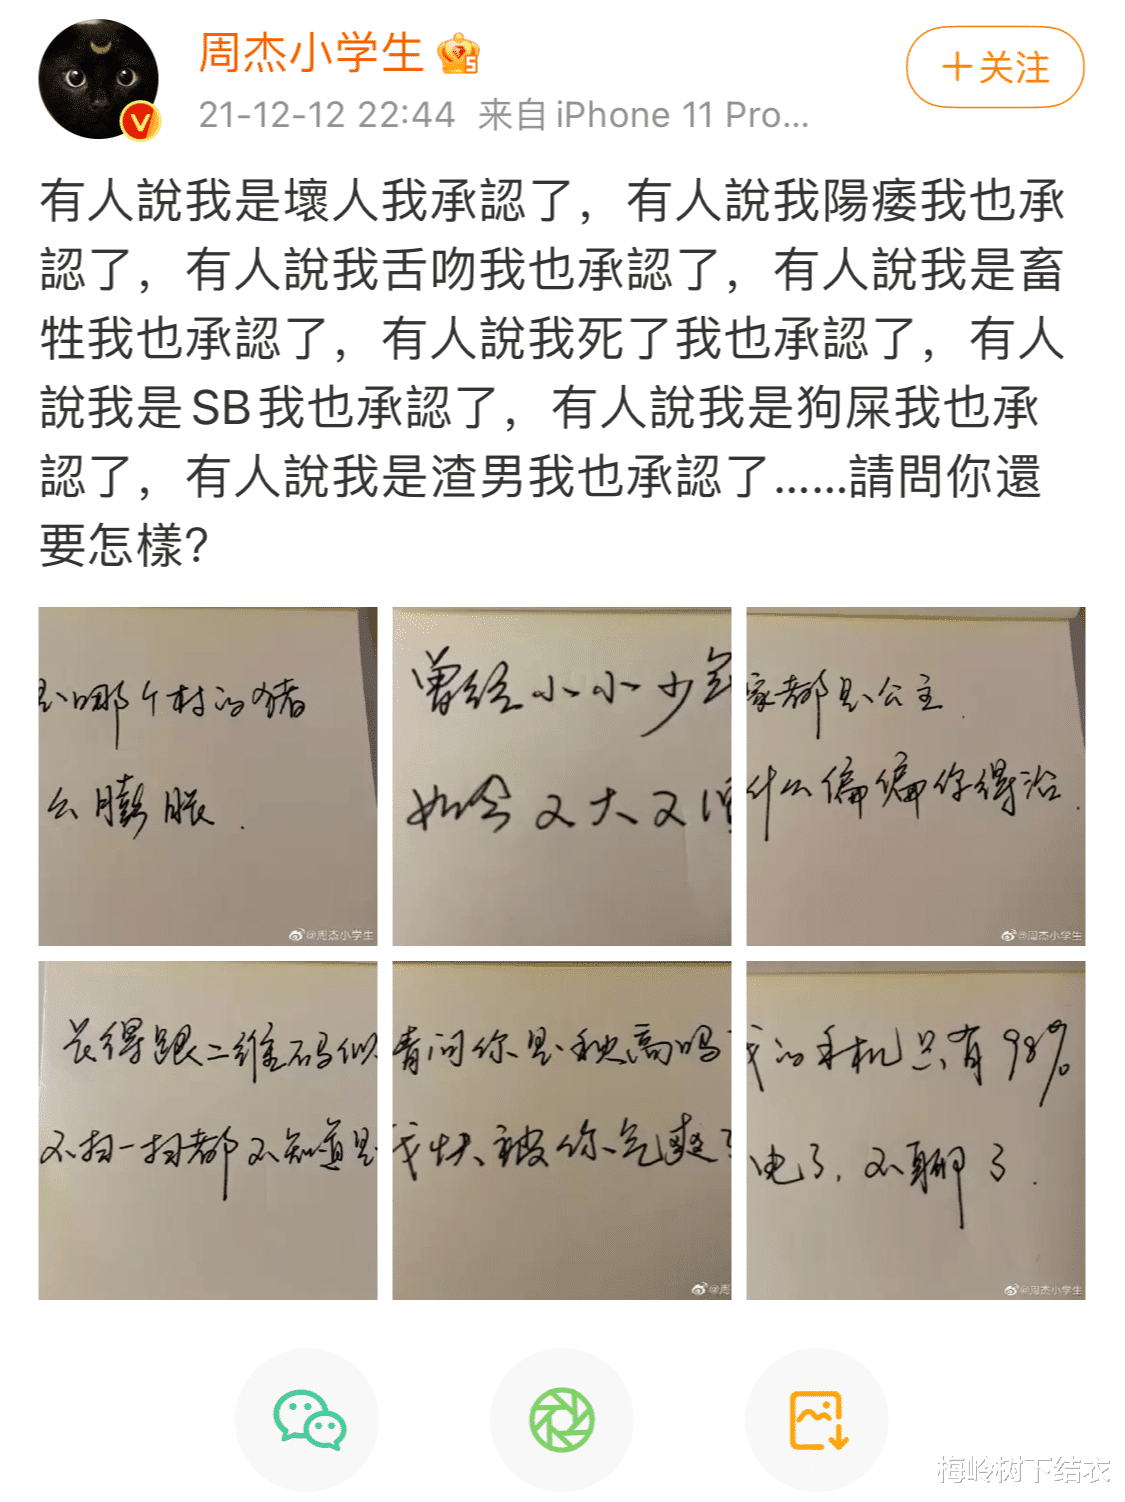 周杰小学生
21-12-12 22:44 来自 iPhone 11 Pro...
+关注
有人說我是壞人我承認了，有人說我陽痿我也承
認了，有人說我舌吻我也承認了，有人說我是畜
牲我也承認了，有人說我死了我也承認了，有人
說我是SB我也承認了，有人說我是狗屎我也承
認了，有人說我是渣男我也承認了......請問你還
要怎樣？
是哪个村的猪
么膨胀.
@周杰小学生
曾经小小少年
如今又大又
家都是公主.
什么偏偏你得治.
@周杰小学生
长得跟二维码似
不扫一扫都不知道是
青问你是秧高吗
我快被你气爽了
@周
我的手机只有98%
电了,不聊了.
@周杰小学生
梅岭树下结衣